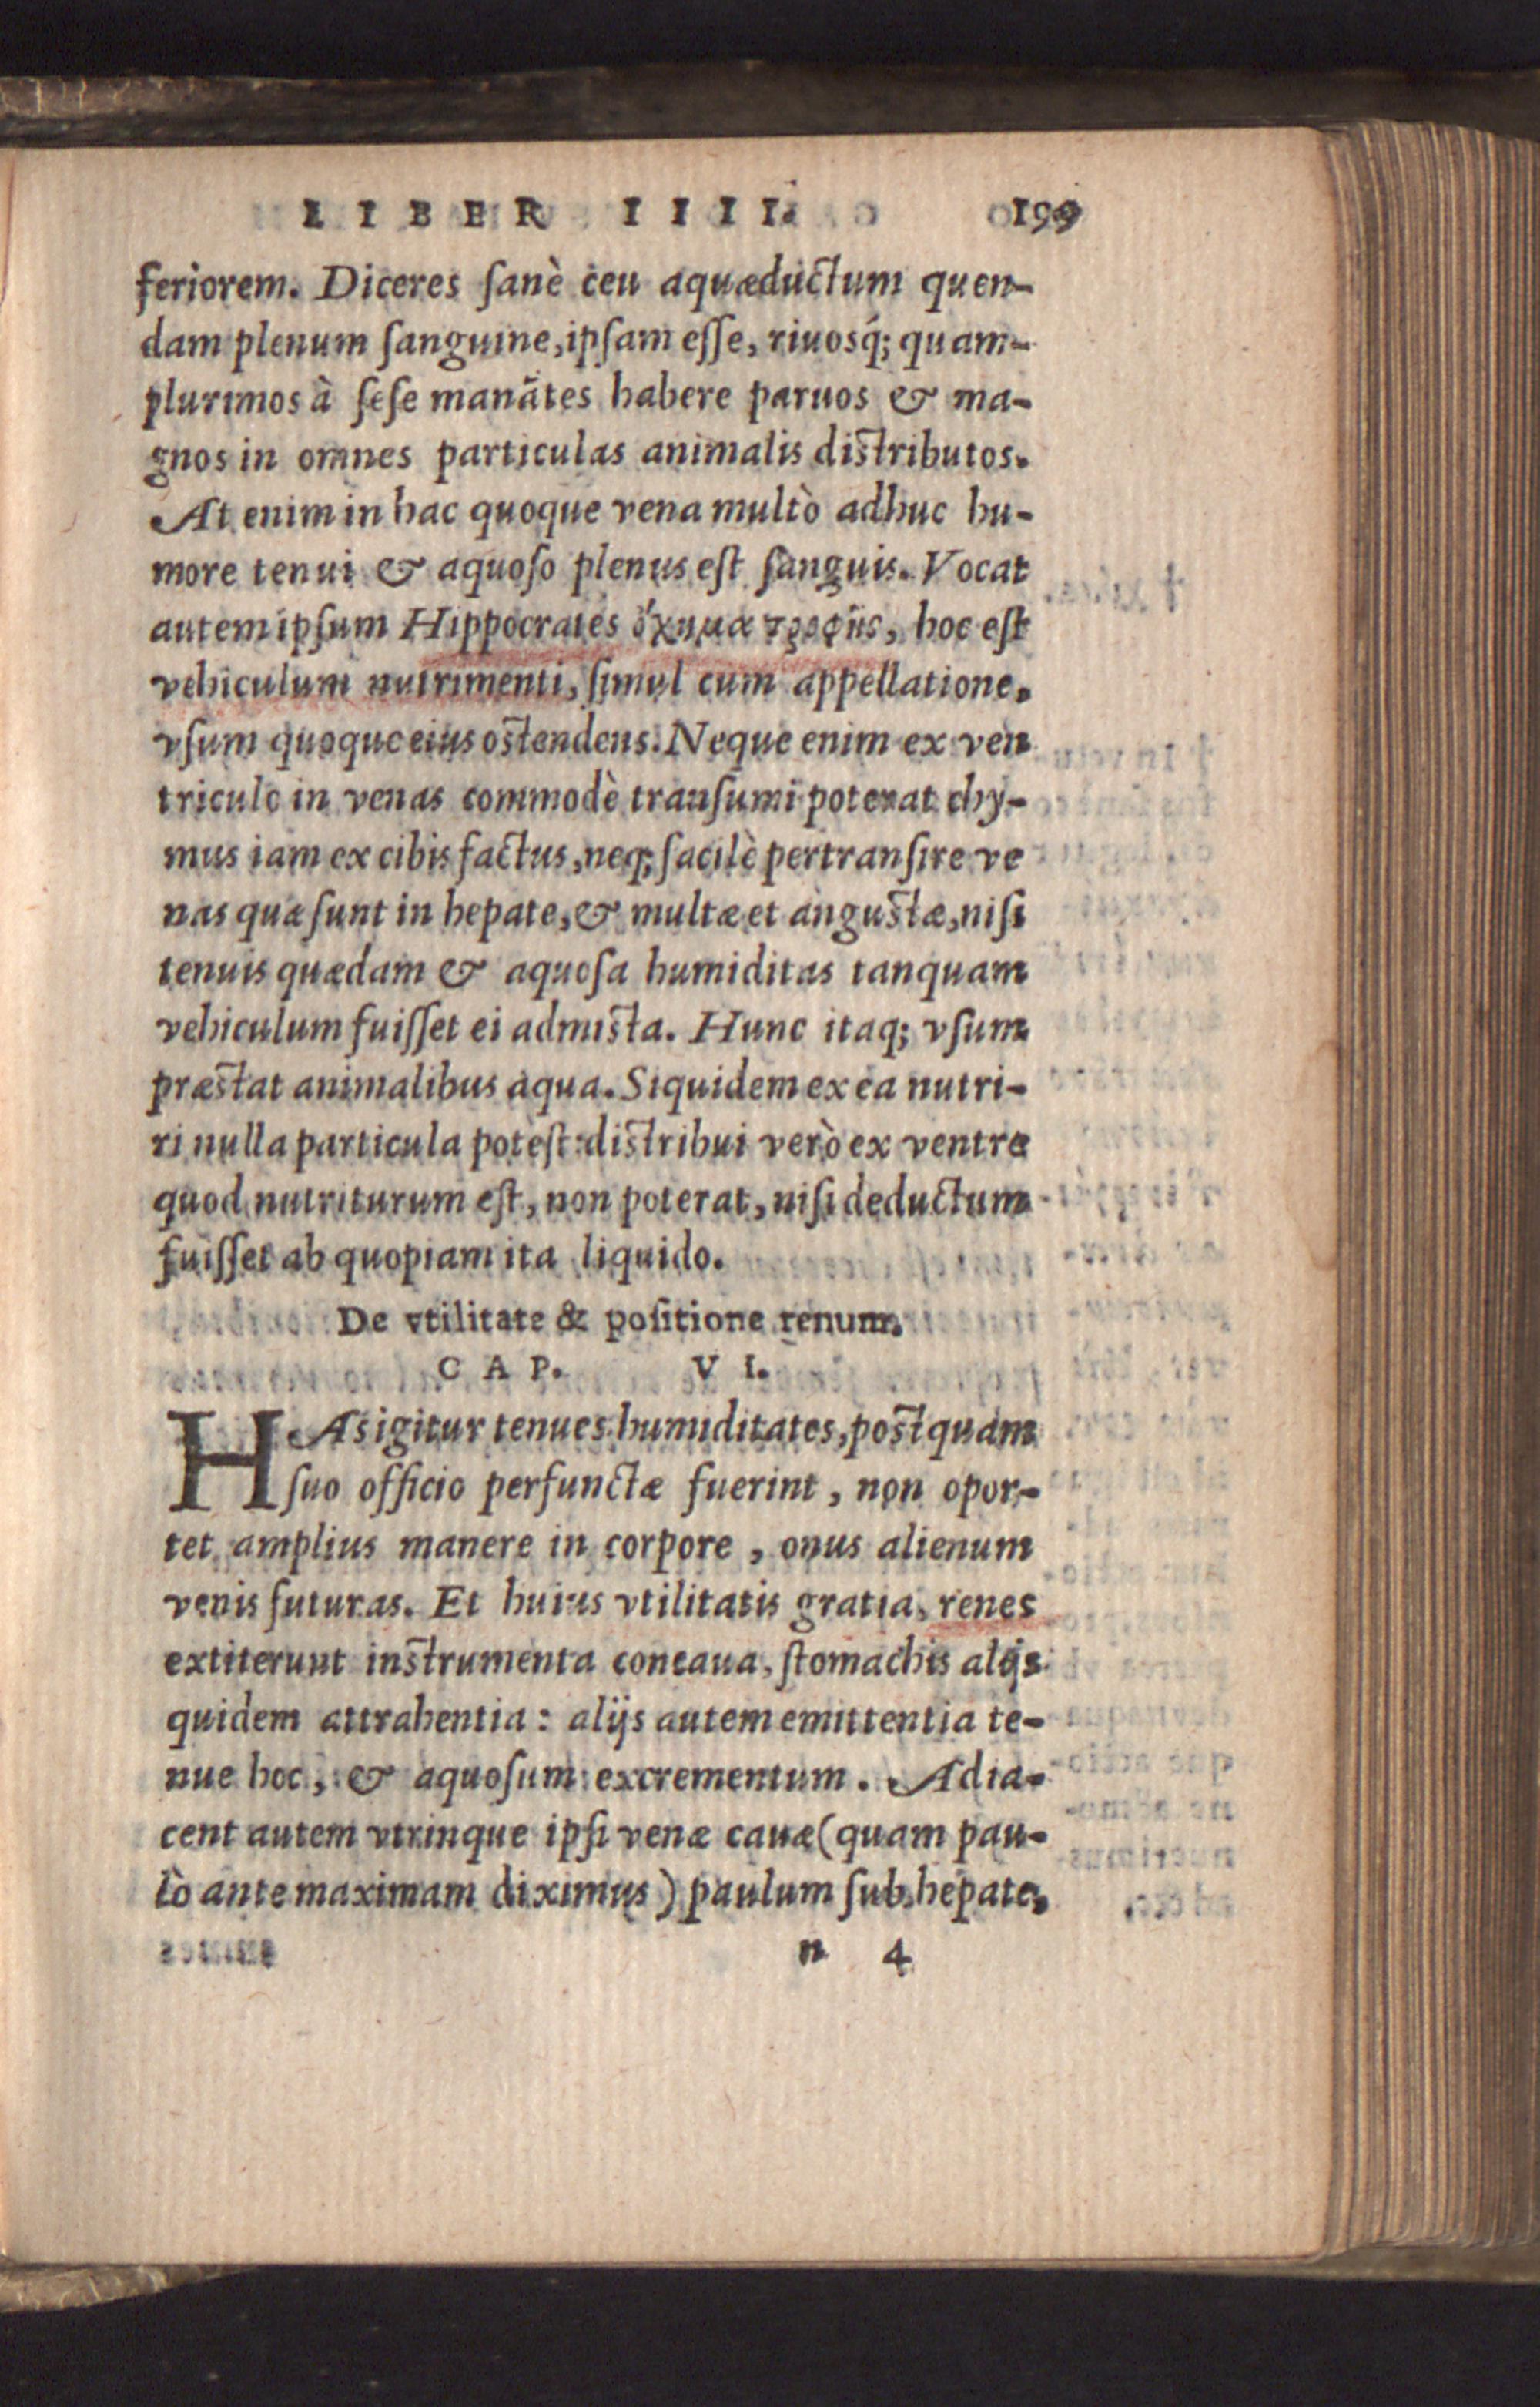 LIBER IIII. 199
feriorem. Diceres ſanè ceu aquæductum quen-
dam plenum ſanguine, ipſam eſſe, riuosq́; quam-
plurimos à ſeſe manātes habere paruos & ma-
gnos in omnes particulas animalis distributos.
At enim in hac quoque vena multò adhuc hu-
more tenui & aquoſo plenus eſt ſanguis. Vocat
autem ipſum Hippocrates ὄχημα τροφῆς, hoc eſt
vehiculum nutrimenti, ſimul cum appellatione,
vſum quoque eius ostendens. Neque enim ex ven
triculo in venas commodè tranſumi poterat chy-
mus iam ex cibis factus, neq; facilè pertranſire ve
nas quæ ſunt in hepate, & multæ et angustæ, niſi
tenuis quædam & aquoſa humiditas tanquam
vehiculum fuiſſet ei admista. Hunc itaq; vſum
præstat animalibus aqua. Siquidem ex ea nutri-
ri nulla particula poteſt: distribui verò ex ventre
quod nutriturum eſt, non poterat, niſi deductum
fuiſſet ab quopiam ita liquido.
De vtilitate & poſitione renum.
CAP. VI.
HAs igitur tenues humiditates, postquam
ſuo officio perfunctæ fuerint, non opor-
tet amplius manere in corpore, onus alienum
venis futuras. Et huius vtilitatis gratia, renes
extiterunt instrumenta concaua, ſtomachis alijs
quidem attrahentia: alijs autem emittentia te-
nue hoc, & aquoſum excrementum. Adia-
cent autem vtrinque ipſi venæ cauæ (quam pau-
lò ante maximam diximus) paulum ſub hepate,
n 4